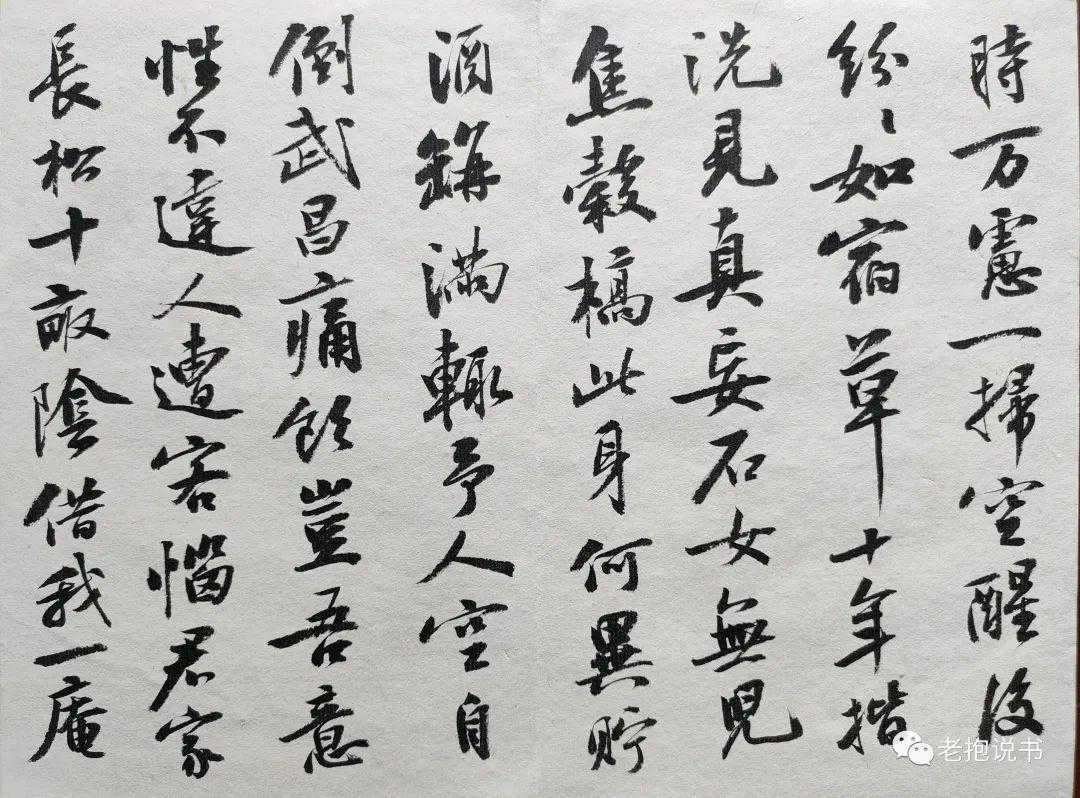 時万慮一掃空醒後
紛〻如宿草十年揩
洗見真妄石女無兒
焦穀槁此身何異貯
酒缾滿輒予人空自
倒武昌痛飲豈吾意
性不違人遭客惱君家
長松十畝陰借我一庵
老抱说书